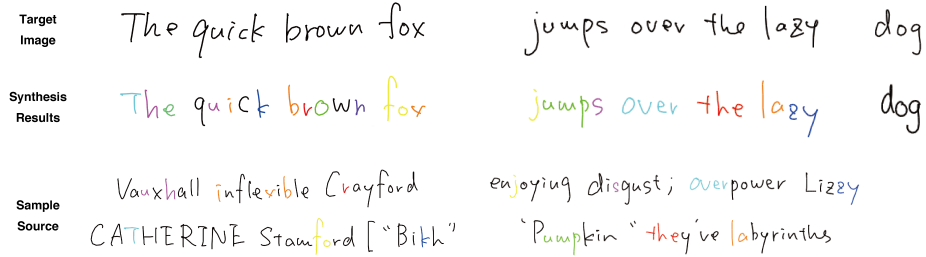 Target Image
The quick brown fox jumps over the lazy dog
Synthesis Results
The quick brown fox jumps over the lazy dog
Sample Source
Vauxhall inflexible Crayford enjoying disgust; overpower Lizzy
CATHERINE Stamford ["Bikh" 'Pumpkin" they've labyrinths